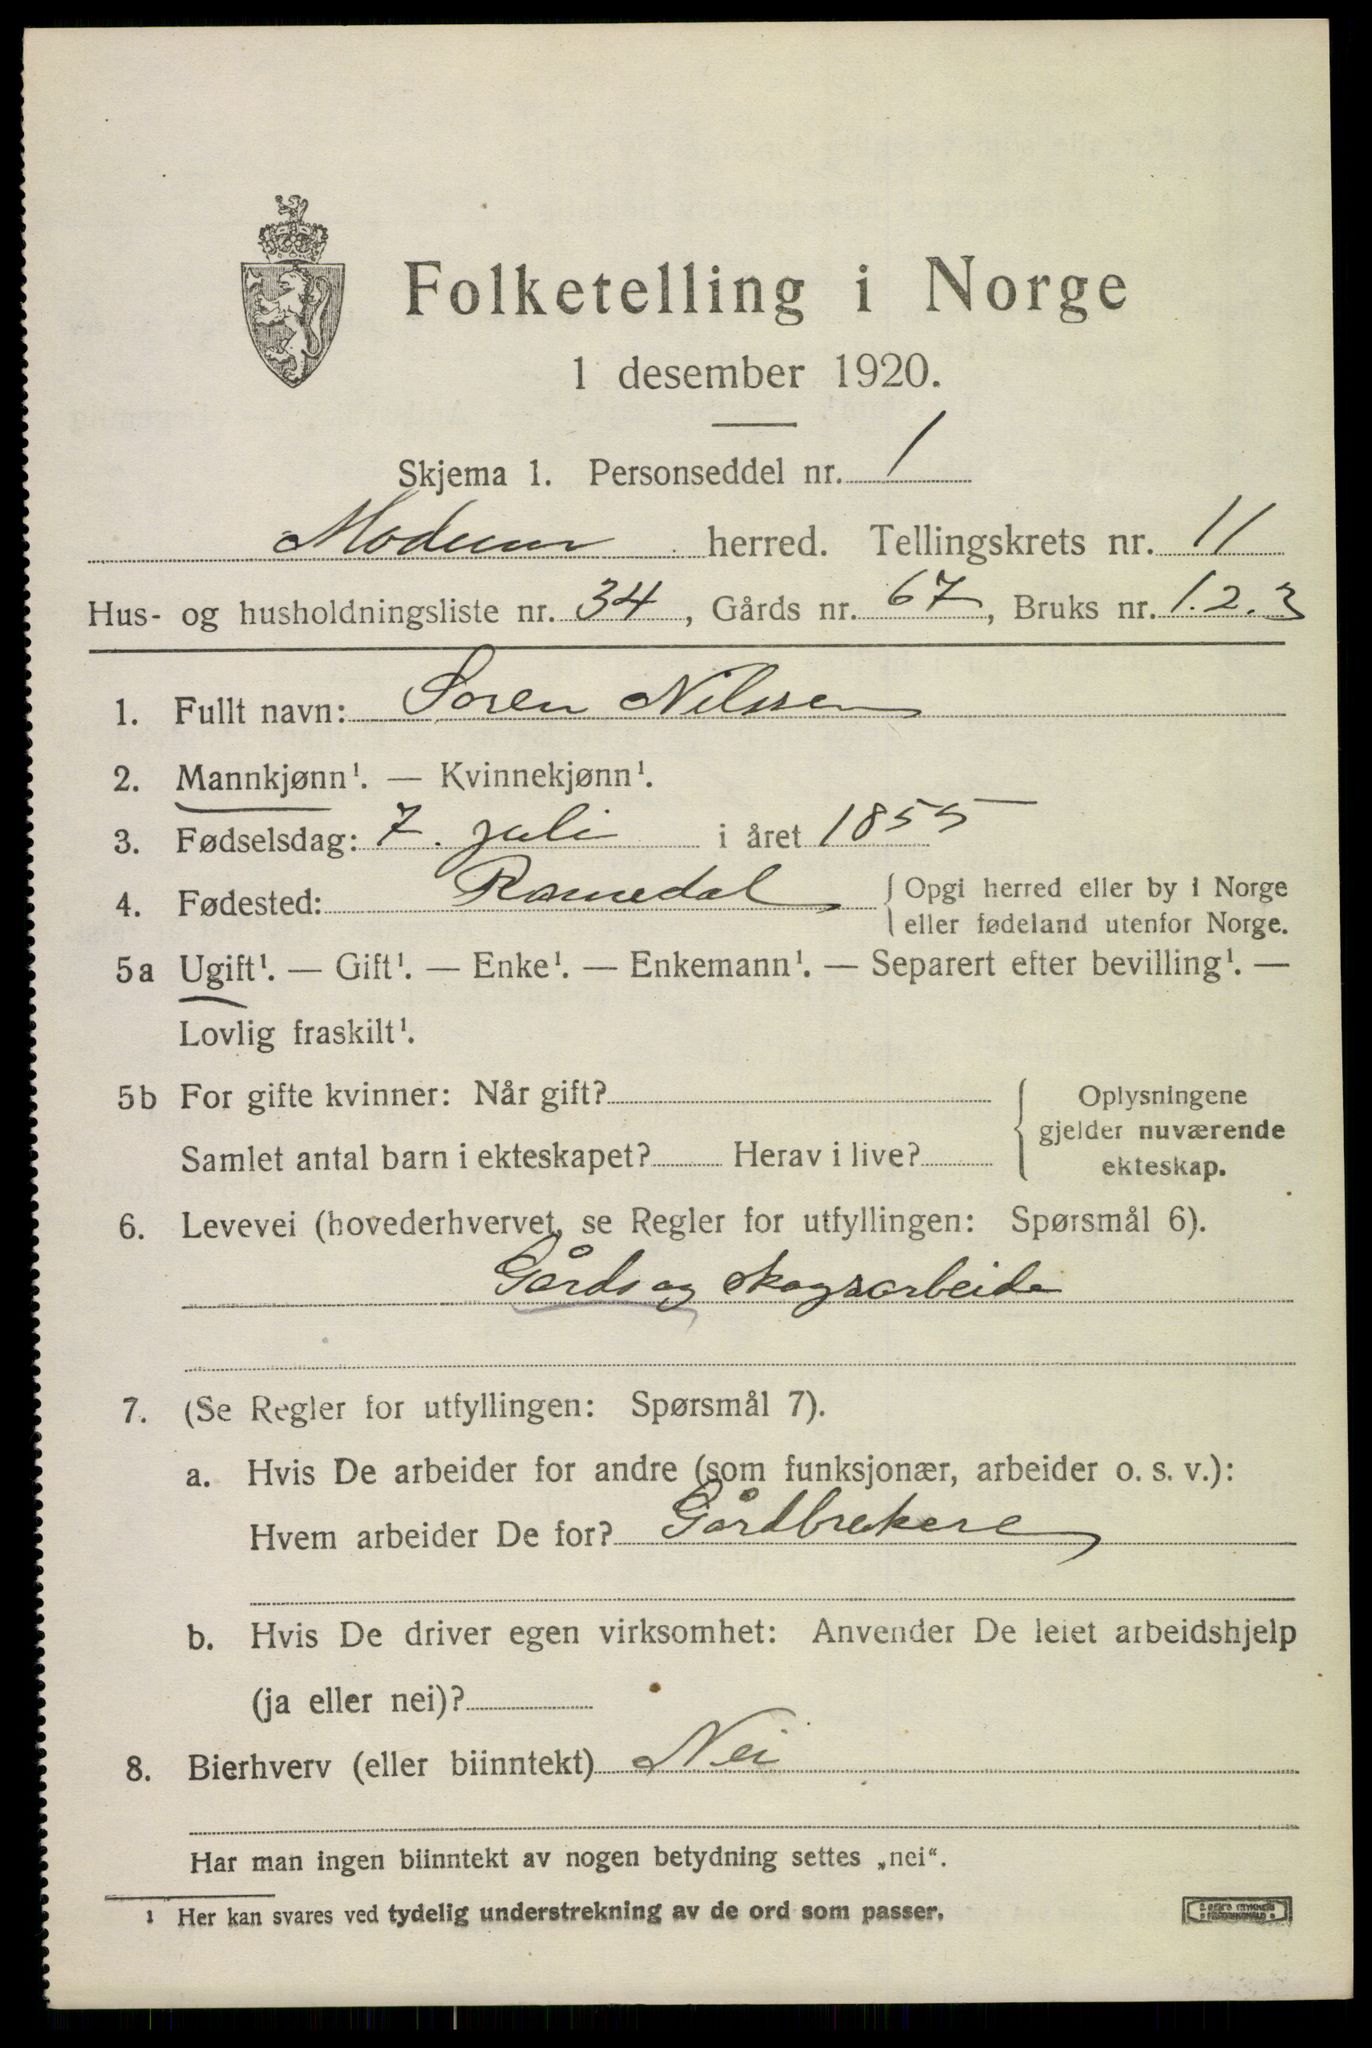 Folketelling i Norge
1 desember 1920.
Skjema 1. Personseddel nr. 1
Modum herred. Tellingskrets nr. 11
Hus- og husholdningsliste nr. 34, Gårds nr. 67, Bruks nr. 1.2.3
1. Fullt navn: Søren Nilssen
2. Mannkjønn¹. — Kvinnekjønn¹.
3. Fødselsdag: 7. juli i året 1855
4. Fødested: Romedal { Opgi herred eller by i Norge
eller fødeland utenfor Norge.
5a Ugift¹. — Gift¹. — Enke¹. — Enkemann¹. — Separert efter bevilling¹. —
Lovlig fraskilt¹.
5b For gifte kvinner: Når gift? { Oplysningene
gjelder nuværende
Samlet antal barn i ekteskapet? Herav i live? ekteskap.
6. Levevei (hovederhvervet, se Regler for utfyllingen: Spørsmål 6).
Gårds og skogsarbeide
7. (Se Regler for utfyllingen: Spørsmål 7).
a. Hvis De arbeider for andre (som funksjonær, arbeider o. s. v.):
Hvem arbeider De for? Gårdbrukere
b. Hvis De driver egen virksomhet: Anvender De leiet arbeidshjelp
(ja eller nei)?
8. Bierhverv (eller biinntekt) Nei
Har man ingen biinntekt av nogen betydning settes „nei“.
¹ Her kan svares ved tydelig understrekning av de ord som passer.